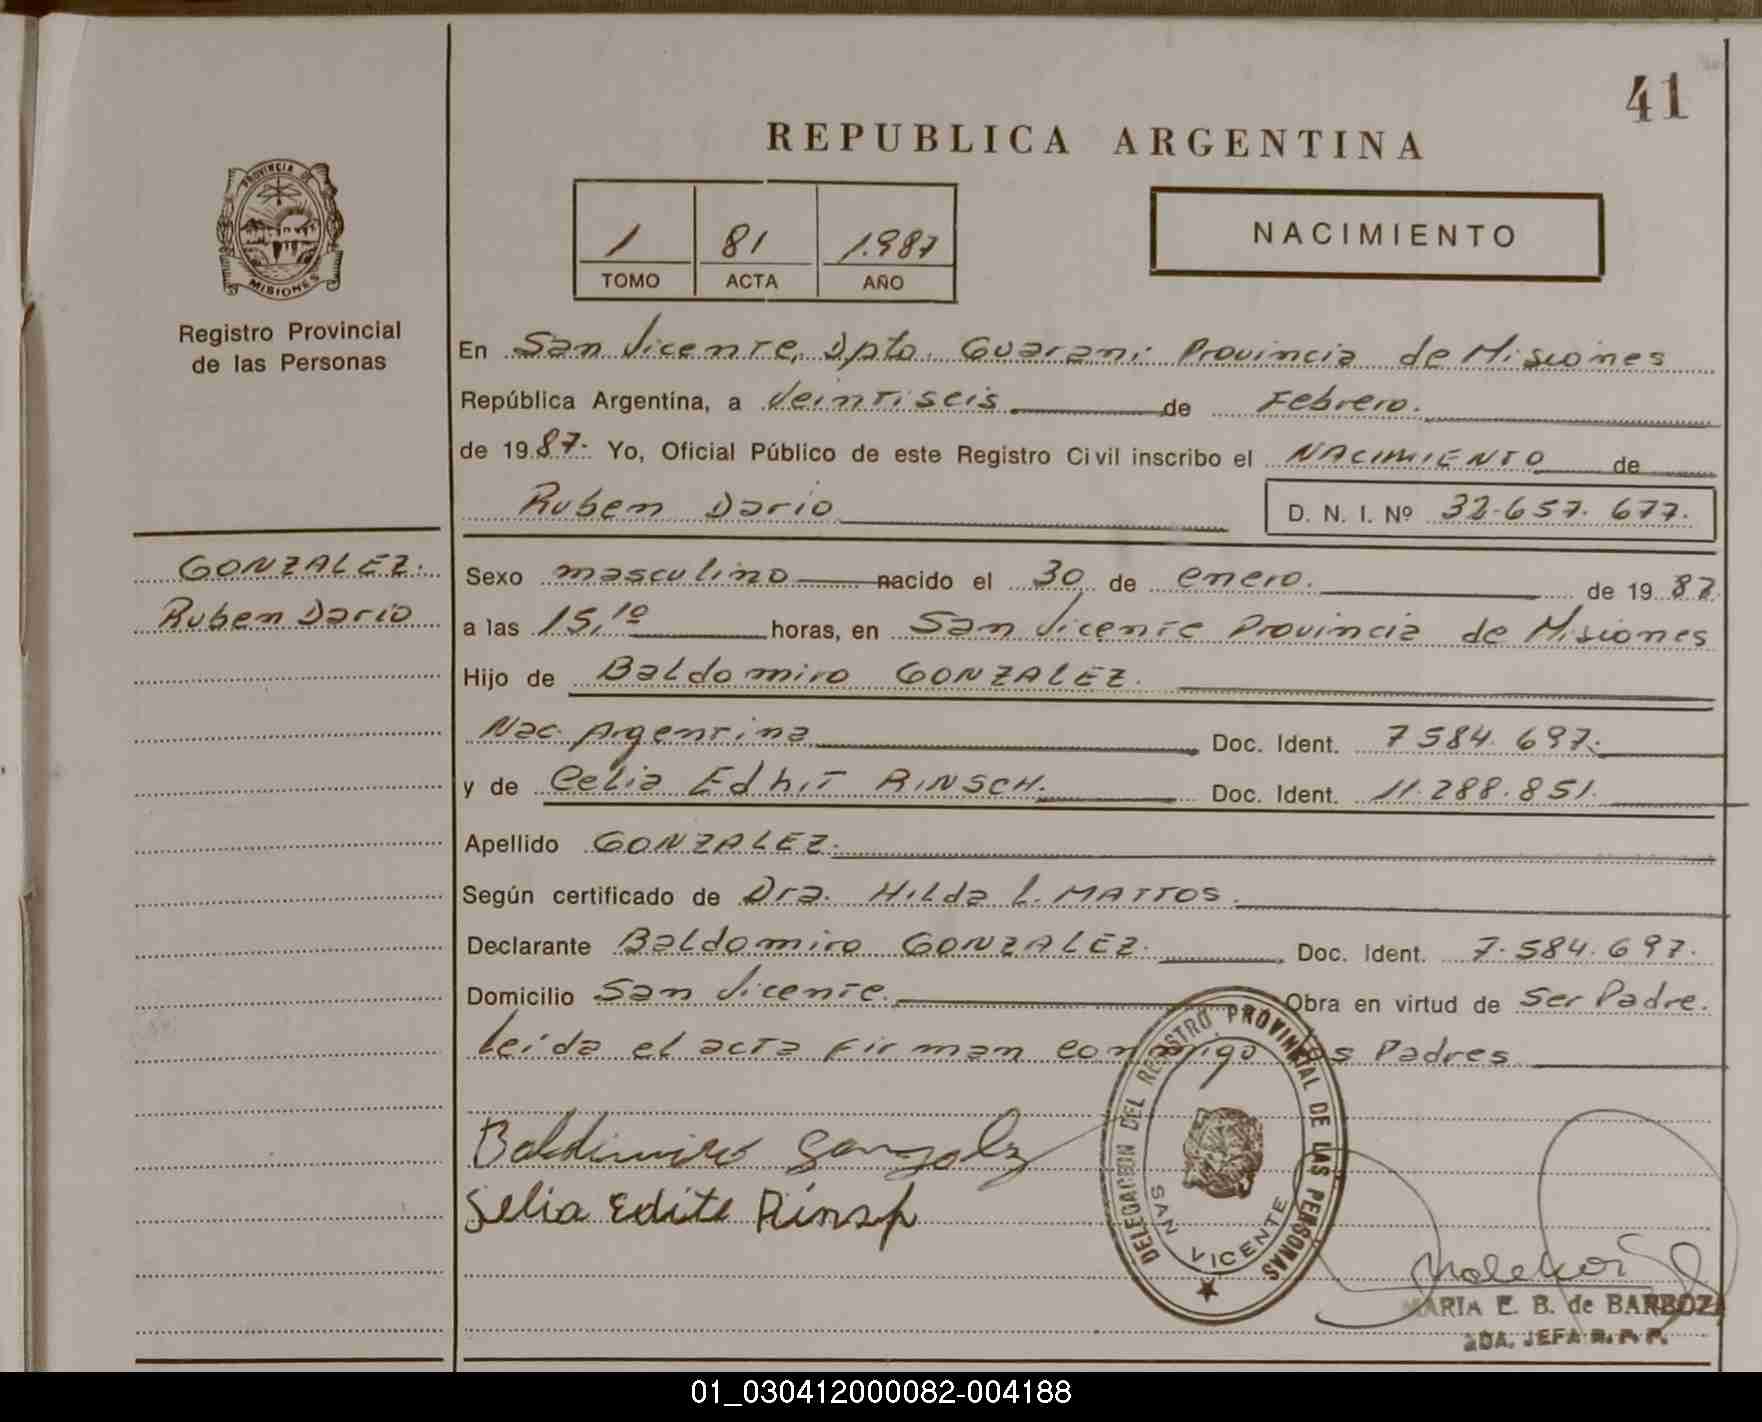 41
REPUBLICA ARGENTINA
PROVINCIA DE
MISIONES
Registro Provincial
de las Personas
1 81 1.987
TOMO ACTA AÑO
NACIMIENTO
En San Vicente, Dpto. Guarani Provincia de Misiones
República Argentina, a Veintiseis de Febrero.
de 1987. Yo, Oficial Público de este Registro Civil inscribo el NACIMIENTO de
Ruben Dario D. N. I. Nº 32.657.677.
GONZALEZ.
Ruben Dario
Sexo masculino nacido el 30 de enero. de 1987
a las 15,10 horas, en San Vicente Provincia de Misiones
Hijo de Baldomiro GONZALEZ.
Nac. Argentina Doc. Ident. 7584.697.
y de Celia Edhit RINSCH. Doc. Ident. 11.288.851.
Apellido GONZALEZ.
Según certificado de Dra. Hilda L. MATTOS.
Declarante Baldomiro GONZALEZ. Doc. Ident. 7.584.697.
Domicilio San Vicente. Obra en virtud de Ser Padre.
Leida el acta firman conmigo los Padres
Baldimiro Gonzalz
Selia Edite Rinsh
DELEGACION DEL REGISTRO PROVINCIAL DE LAS PERSONAS
SAN VICENTE
MARIA E. B. de BARBOZA
2DA. JEFA R. P. P.
01_030412000082-004188